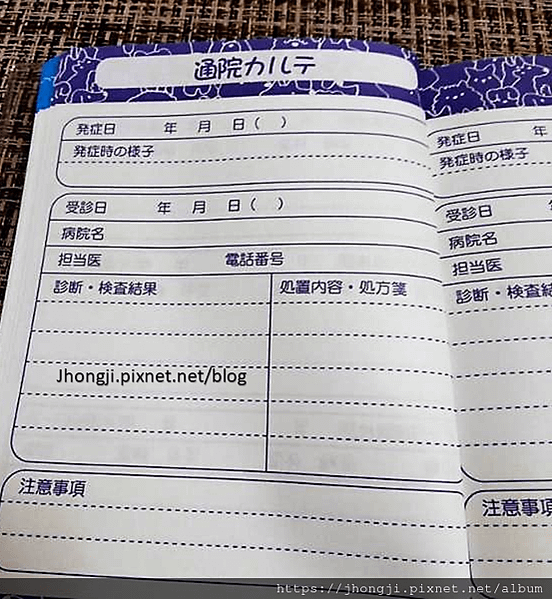 通院カルテ
発症日 年 月 日( )
発症時の様子
受診日 年 月 日( )
病院名
担当医 電話番号
診断・検査結果 処置内容・処方箋
注意事項
発症日 年
発症時の様子
受診日
病院名
担当医
診断・検査結
注意事項
Jhongji.pixnet.net/blog
https://jhongji.pixnet.net/album